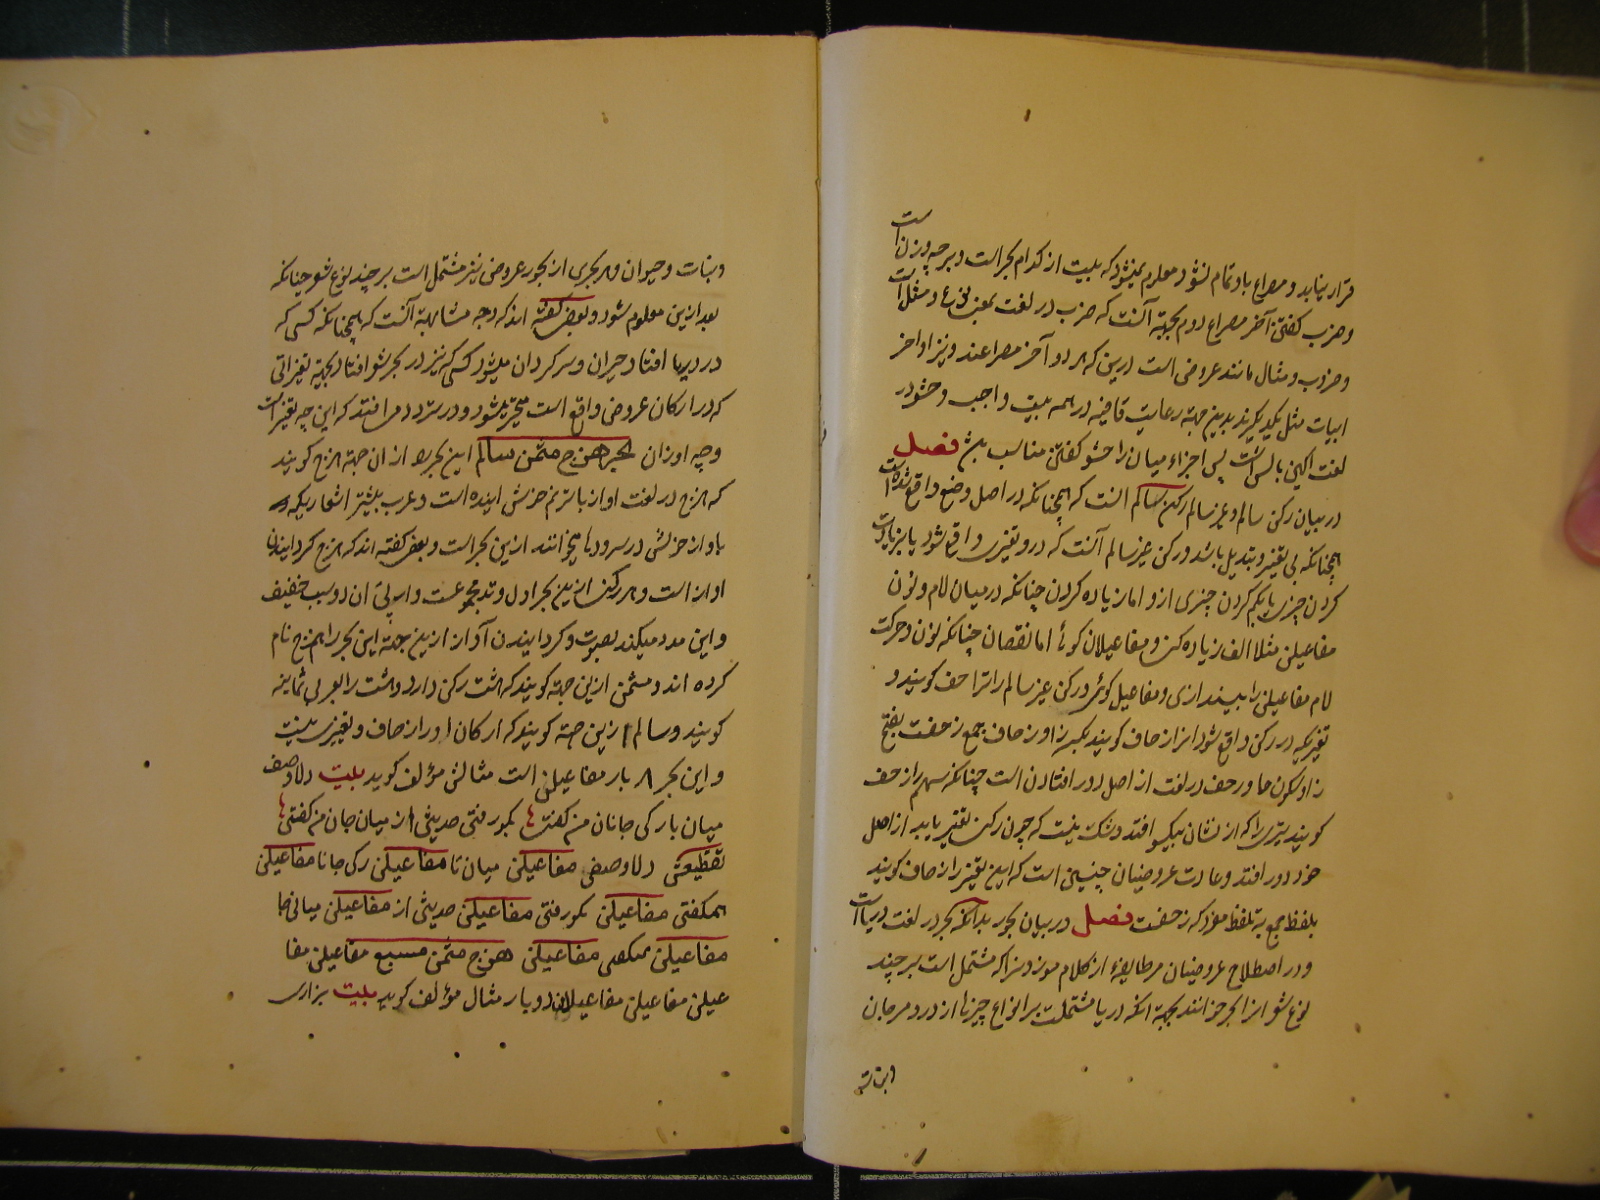 قرار نیابد و مصراع باو تمام نشود معلوم نمیشود که بیت از کدام بحر است و بر چه وزن است
و ضرب گفتن آخر مصراع دوم بجهة آنست که ضرب در لغت بمعنی نوع و مثل است
و ضروب و مثال مانند عروض است درین که هر دو آخر مصراعند و نیز اواخر
ابیات مثل یکدیگرند بدین جهة رعایت قافیه در همه بیت واجب و حشو در
لغت آکین بالش است پس اجزاء میان را حشو گفتن مناسب بیش فصل
در بیان رکن سالم و غیر سالم رکن سالم آنست که همچنانکه در اصل وضع واقع شده است
همچنانکه بی تغیر و تبدیل باشد و رکن غیر سالم آنست که درو تغیری واقع شود یا بزیادت
کردن چیزی یا بکم کردن چیزی ازو اما زیاده کردن چنانکه در میان لام و نون
مفاعیلن مثلا الف زیاده کنی و مفاعیلان گوئی اما نقصان چنانکه نون و حرکت
لام مفاعیلن را بیندازی و مفاعیل گوئی و رکن غیر سالم را مزاحف گویند و
تغیریکه در رکن واقع شود انرا زحاف گویند بکسر زا و زحاف جمع زحفست بفتح
زا و سکون حا و زحف در لغت از اصل دور افتادن است چنانکه سهم زاحف
گویند تیری را که از نشان بیکسو افتد و شک نیست که چون رکن تغیر یابد از اصل
خود دور افتد و عادت عروضیان چنین است که این تغیر را زحاف گویند
بلفظ جمع نه بلفظ مفرد که زحفست فصل در بیان بحور بدانکه بحر در لغت دریا است
و در اصطلاح عروضیان مر طایفهٔ از کلام موزونرا که مشتمل است بر چند
نوع شعر انرا بحر خوانند بجهة آنکه دریا مشتملست بر انواع چیزها از در و مرجان
و نبات
و نبات و حیوان و هر بحری از بحور عروض نیز مشتمل است بر چند نوع شعر چنانکه
بعد ازین معلوم شود و بعضی گفته اند که وجه مشابهة آنست که همچنانکه کسی که
در دریا افتاد حیران و سرگردان میشود کسی که نیز در بحر شعر افتاد بجهة تغیراتی
که در ارکان عروض واقع است متحیر میشود و در تردد می افتد که این چه تغیر است
و چه اوزان بحر هزج مثمن سالم این بحر را از ان جهة هزج گویند
که هزج در لغت اواز با ترنم خوش آینده است و عرب بیشتر اشعاریکه
باواز خوش در سرودها میخوانند ازین بحر است و بعضی گفته اند که هزج گردانیدن
اواز است و هر رکن ازین بحر اول وتد مجموعست و از پی آن دو سبب خفیف
و این مدد میکند بصوت و گردانیدن آواز ازین جهة این بحر را هزج نام
کرده اند و مثمن ازین جهة گویند که هشت رکن دارد و هشت را بعربی ثمانیه
گویند و سالم ازین جهة گویند که ارکان او را زحاف و تغیری نیست
و این بحر ۸ بار مفاعیلن است مثالش مؤلف گوید بیت دلا وصف
میان بارکی جانان من گفتی بکو رفتی حدیثی از میان جان من گفتی
تقطیعش دلا وصفی مفاعیلن میان نا مفاعیلن رکی جانا مفاعیلن
همکفتی مفاعیلن نکو رفتی مفاعیلن حدیثی از مفاعیلن میانی جا
مفاعیلن مفاعیلن هزج مثمن مسبع مفاعیلن مفا
عیلن مفاعیلن مفاعیلان دو بار مثال مؤلف گوید بیت بزاری